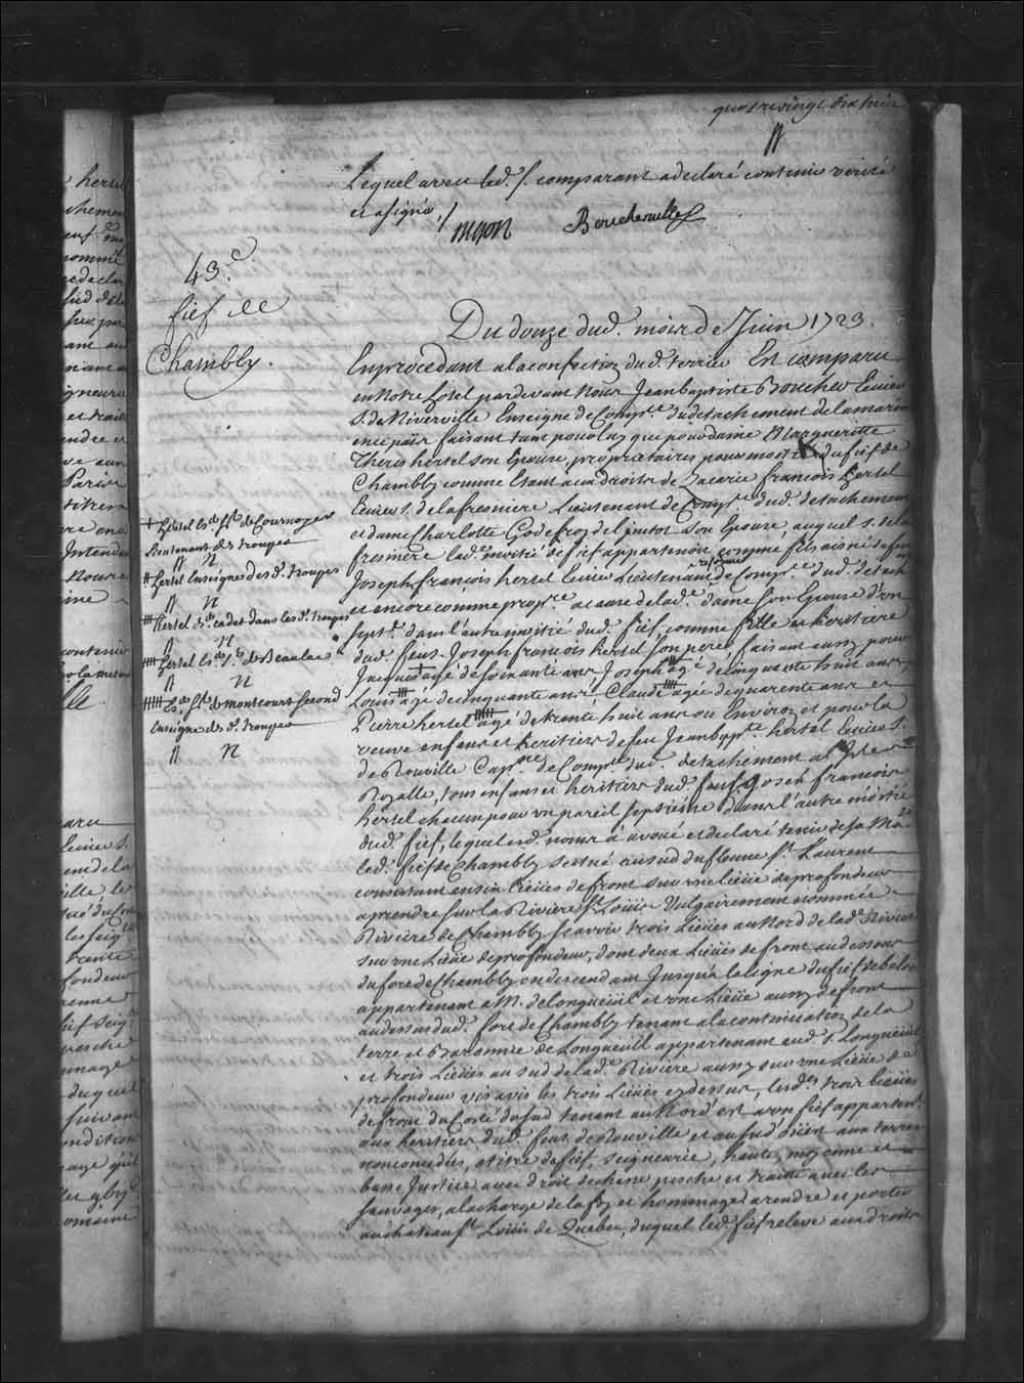 quatrevingt dix huit
Lequel aveu led. s. comparant a declaré contenir verité
et a signé,
Begon Boucherville
43.e
fief de
Chambly.
Du douze dud. mois de Juin 1723.
En procedant a la confection dud. terrier Est comparu
en notre hotel pardevant Nous Jean baptiste Boucher Ecuier
S. de Niverville Enseigne de Comp.e du detachement de la marine
en ce païs faisant tant pour luy que pour dame Margueritte
Therese hertel son Epouse, proprietaires pour moitié du fief de
Chambly comme Etant aux droits de Zacarie françois hertel
Ecuier S. de la fresniere Lieutenant de Comp.e dud. detachement
et dame Charlotte Godefroy de Lintot son Epouse, auquel s. de la
fresniere lad. moitié de fief appartenoit comme fils aisné de feu
Joseph françois hertel Ecuier Lieutenant reformé de Comp.e dud. detach.
et encore comme prop.re a cause de lad.e dame son Epouse d'un
sept.e dans l'autre moitié dud. fief, comme fille et heritiere
dud. feu s. Joseph françois hertel son pere, faisant aussy pour
Jacques + agé de soixante ans, Joseph agé de cinquante huit ans
Louis agé de cinquante ans, Claude agé de quarente ans et
Pierre hertel agé de trente huit ans ou Environ et pour la
veuve enfans et heritiers de feu Jean bap.te hertel Ecuier S.
de Rouville Cap.ne de Comp.e dud. detachement a l'Isle
Royalle, tous enfans et heritiers dud. feu s. Joseph francois
hertel chacun pour un pareil septieme dans l'autre moitié
dud. fief, lequel esd. noms a avoué et declaré tenir de sa Ma.té
led. fief de Chambly scitué au sud du fleuve S.t Laurent
consistant en six Lieües de front sur une lieüe de profondeur
a prendre sur la Riviere S.t Loüis Vulgairement nommée
Riviere de Chambly scavoir trois Lieües au Nord de lad.e Riviere
sur une Lieüe de profondeur, dont deux Lieües de front au dessous
du fort de Chambly en descendant Jusqu'a la ligne du fief de beloeil
appartenant a M. de longueüil et une Lieüe aussy de front
au dessus dud. fort de Chambly tenant a la continuation de la
terre et Baronnie de Longueüil appartenant aud. s. Longueüil
et trois Lieües au sud de lad.e Riviere aussy sur une Lieüe de
profondeur vis avis les trois Lieües cy dessus, lesd.es trois lieües
de front du Costé du sud tenant au Nord est a un fief appartent
aux heritiers dud. feu s. de Rouville et au sud oüest aux terres
non concedées, a titre de fief, seigneurie, haute, moyenne et
basse Justice avec droit de chasse pesche et traitte avec les
sauvages, a la charge de la foy et hommage a rendre et porter
au chateau S.t Loüis de Quebec, duquel led. fief releve aux droits
+ hertel Es. S.r de Cournoyer
Lieutenant des trouppes
# hertel Enseigne des d. trouppes
hertel Es. cadet dans les d. troupes
hertel Es. S.r de Beaulac
Es. S.r de montcourt second
Enseigne des d. trouppes